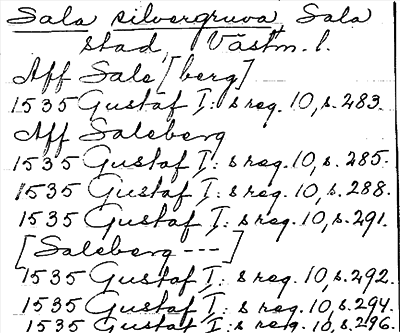 Sala silvergruva, Sala
stad, Västm. l.
Aff Sale[berg]
1535 Gustaf I:s reg. 10, s. 283.
Aff Saleberg
1535 Gustaf I:s reg. 10, s. 285.
1535 Gustaf I:s reg. 10, s. 288.
1535 Gustaf I:s reg. 10, s. 291.
[Saleberg ---]
1535 Gustaf I:s reg. 10, s. 292.
1535 Gustaf I:s reg. 10, s. 294.
1535 Gustaf I:s reg. 10, s. 296.